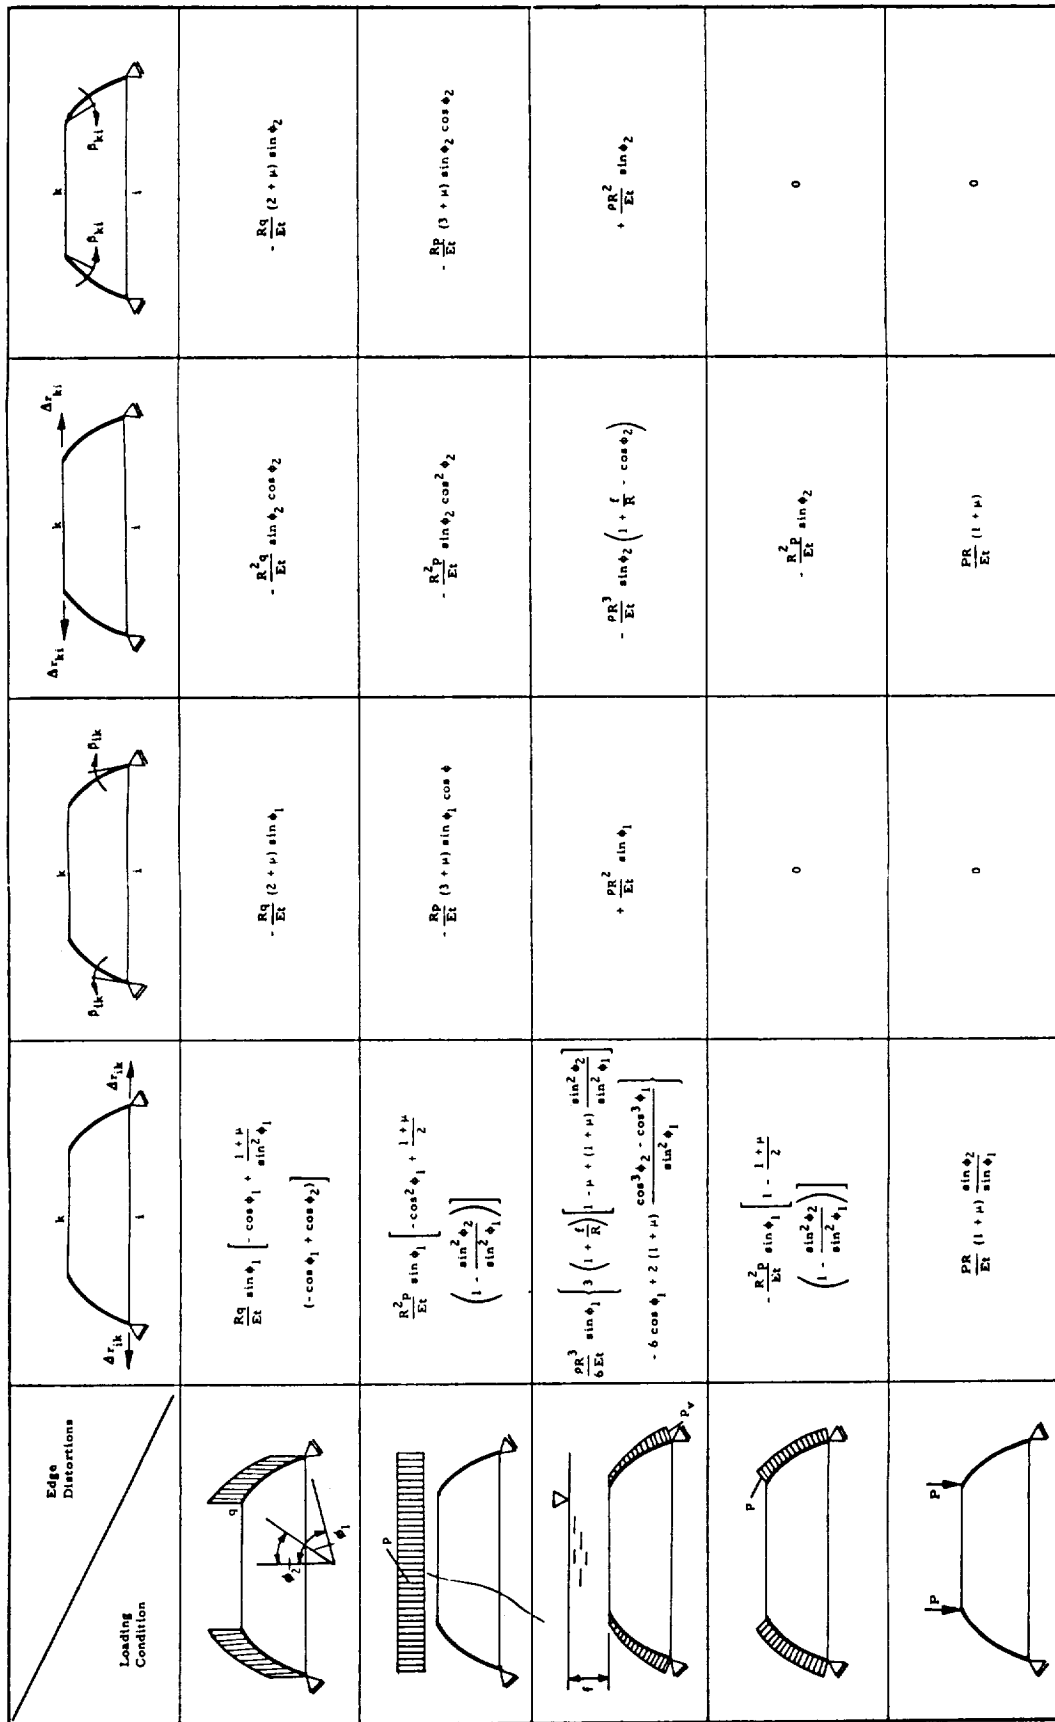 Edge
Distortions
Loading
Condition
Δr_ik k Δr_ik
i
β_ik k β_ik
i
Δr_ki k Δr_ki
i
β_ki k β_ki
i
q
ϕ_2 ϕ_1
\frac{Rq}{Et} sin ϕ_1 [ - cos ϕ_1 + \frac{1 + μ}{sin^2 ϕ_1}
(-cos ϕ_1 + cos ϕ_2) ]
- \frac{Rq}{Et} (2 + μ) sin ϕ_1
- \frac{R^2 q}{Et} sin ϕ_2 cos ϕ_2
- \frac{Rq}{Et} (2 + μ) sin ϕ_2
p
\frac{R^2 p}{Et} sin ϕ_1 [ -cos^2 ϕ_1 + \frac{1 + μ}{2}
( 1 - \frac{sin^2 ϕ_2}{sin^2 ϕ_1} ) ]
- \frac{Rp}{Et} (3 + μ) sin ϕ_1 cos ϕ
- \frac{R^2 p}{Et} sin ϕ_2 cos^2 ϕ_2
- \frac{Rp}{Et} (3 + μ) sin ϕ_2 cos ϕ_2
f
P_v
\frac{ρR^3}{6 Et} sin ϕ_1 { 3 ( 1 + \frac{f}{R} ) [ 1 - μ + (1 + μ) \frac{sin^2 ϕ_2}{sin^2 ϕ_1} ]
- 6 cos ϕ_1 + 2 (1 + μ) \frac{cos^3 ϕ_2 - cos^3 ϕ_1}{sin^2 ϕ_1} }
+ \frac{ρR^2}{Et} sin ϕ_1
- \frac{ρR^3}{Et} sin ϕ_2 ( 1 + \frac{f}{R} - cos ϕ_2 )
+ \frac{ρR^2}{Et} sin ϕ_2
p
- \frac{R^2 p}{Et} sin ϕ_1 [ 1 - \frac{1 + μ}{2}
( 1 - \frac{sin^2 ϕ_2}{sin^2 ϕ_1} ) ]
0
- \frac{R^2 p}{Et} sin ϕ_2
0
P P
\frac{PR}{Et} (1 + μ) \frac{sin ϕ_2}{sin ϕ_1}
0
\frac{PR}{Et} (1 + μ)
0